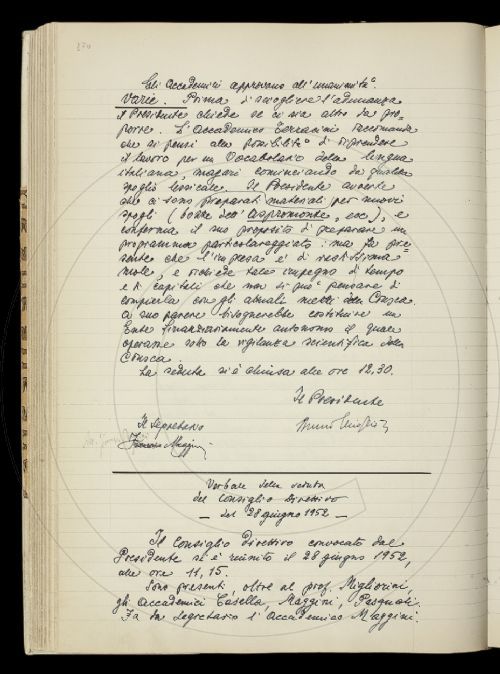 270
Gli Accademici approvano all'unanimità.
Varie. Prima di sciogliere l'adunanza
il Presidente chiede se ci sia altro da pro=
porre. L'Accademico Terracini raccomanda
che si pensi alla possibilità di riprendere
il lavoro per un Vocabolario della lingua
italiana, magari cominciando da qualche
spoglio lessicale. Il Presidente avverte
che ci sono preparati materiali per nuovi
spogli (bozze dell'Aspromonte, ecc), e
conferma il suo proposito di preparare un
programma particolareggiato: ma fa pre=
sente che l'impresa è di vastissima
mole, e richiede tale impegno di tempo
e di capitali che non si può pensare di
compierla con gli attuali mezzi della Crusca.
A suo parere bisognerebbe costituire un
Ente finanziariamente autonomo il quale
operasse sotto la vigilanza scientifica della
Crusca.
La seduta si è chiusa alle ore 12,30.
Il Presidente
Il Segretario
Bruno Migliorini
Francesco Maggini
Verbale della seduta
del Consiglio Direttivo
— del 28 giugno 1952 —
Il Consiglio Direttivo convocato dal
Presidente si è riunito il 28 giugno 1952,
alle ore 11,15.
Sono presenti, oltre al prof. Migliorini,
gli Accademici Casella, Maggini, Pasquali.
Fa da Segretario l'Accademico Maggini.